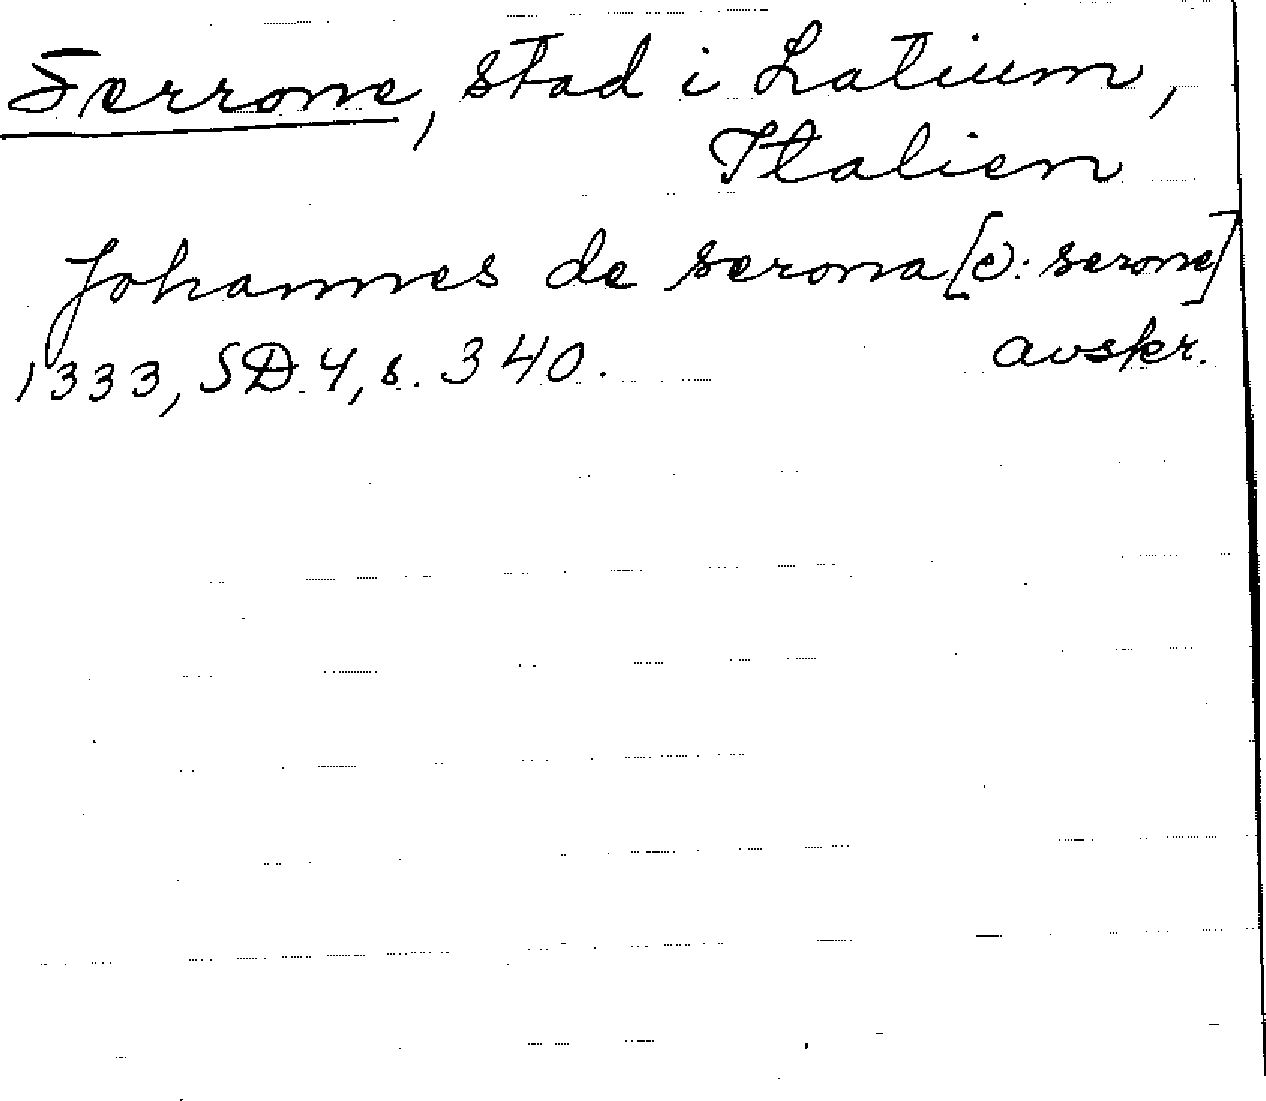 Serrone, stad i Latium,
Italien
Johannes de serona [ɔ: serone]
1333, SD 4, s. 340. avskr.